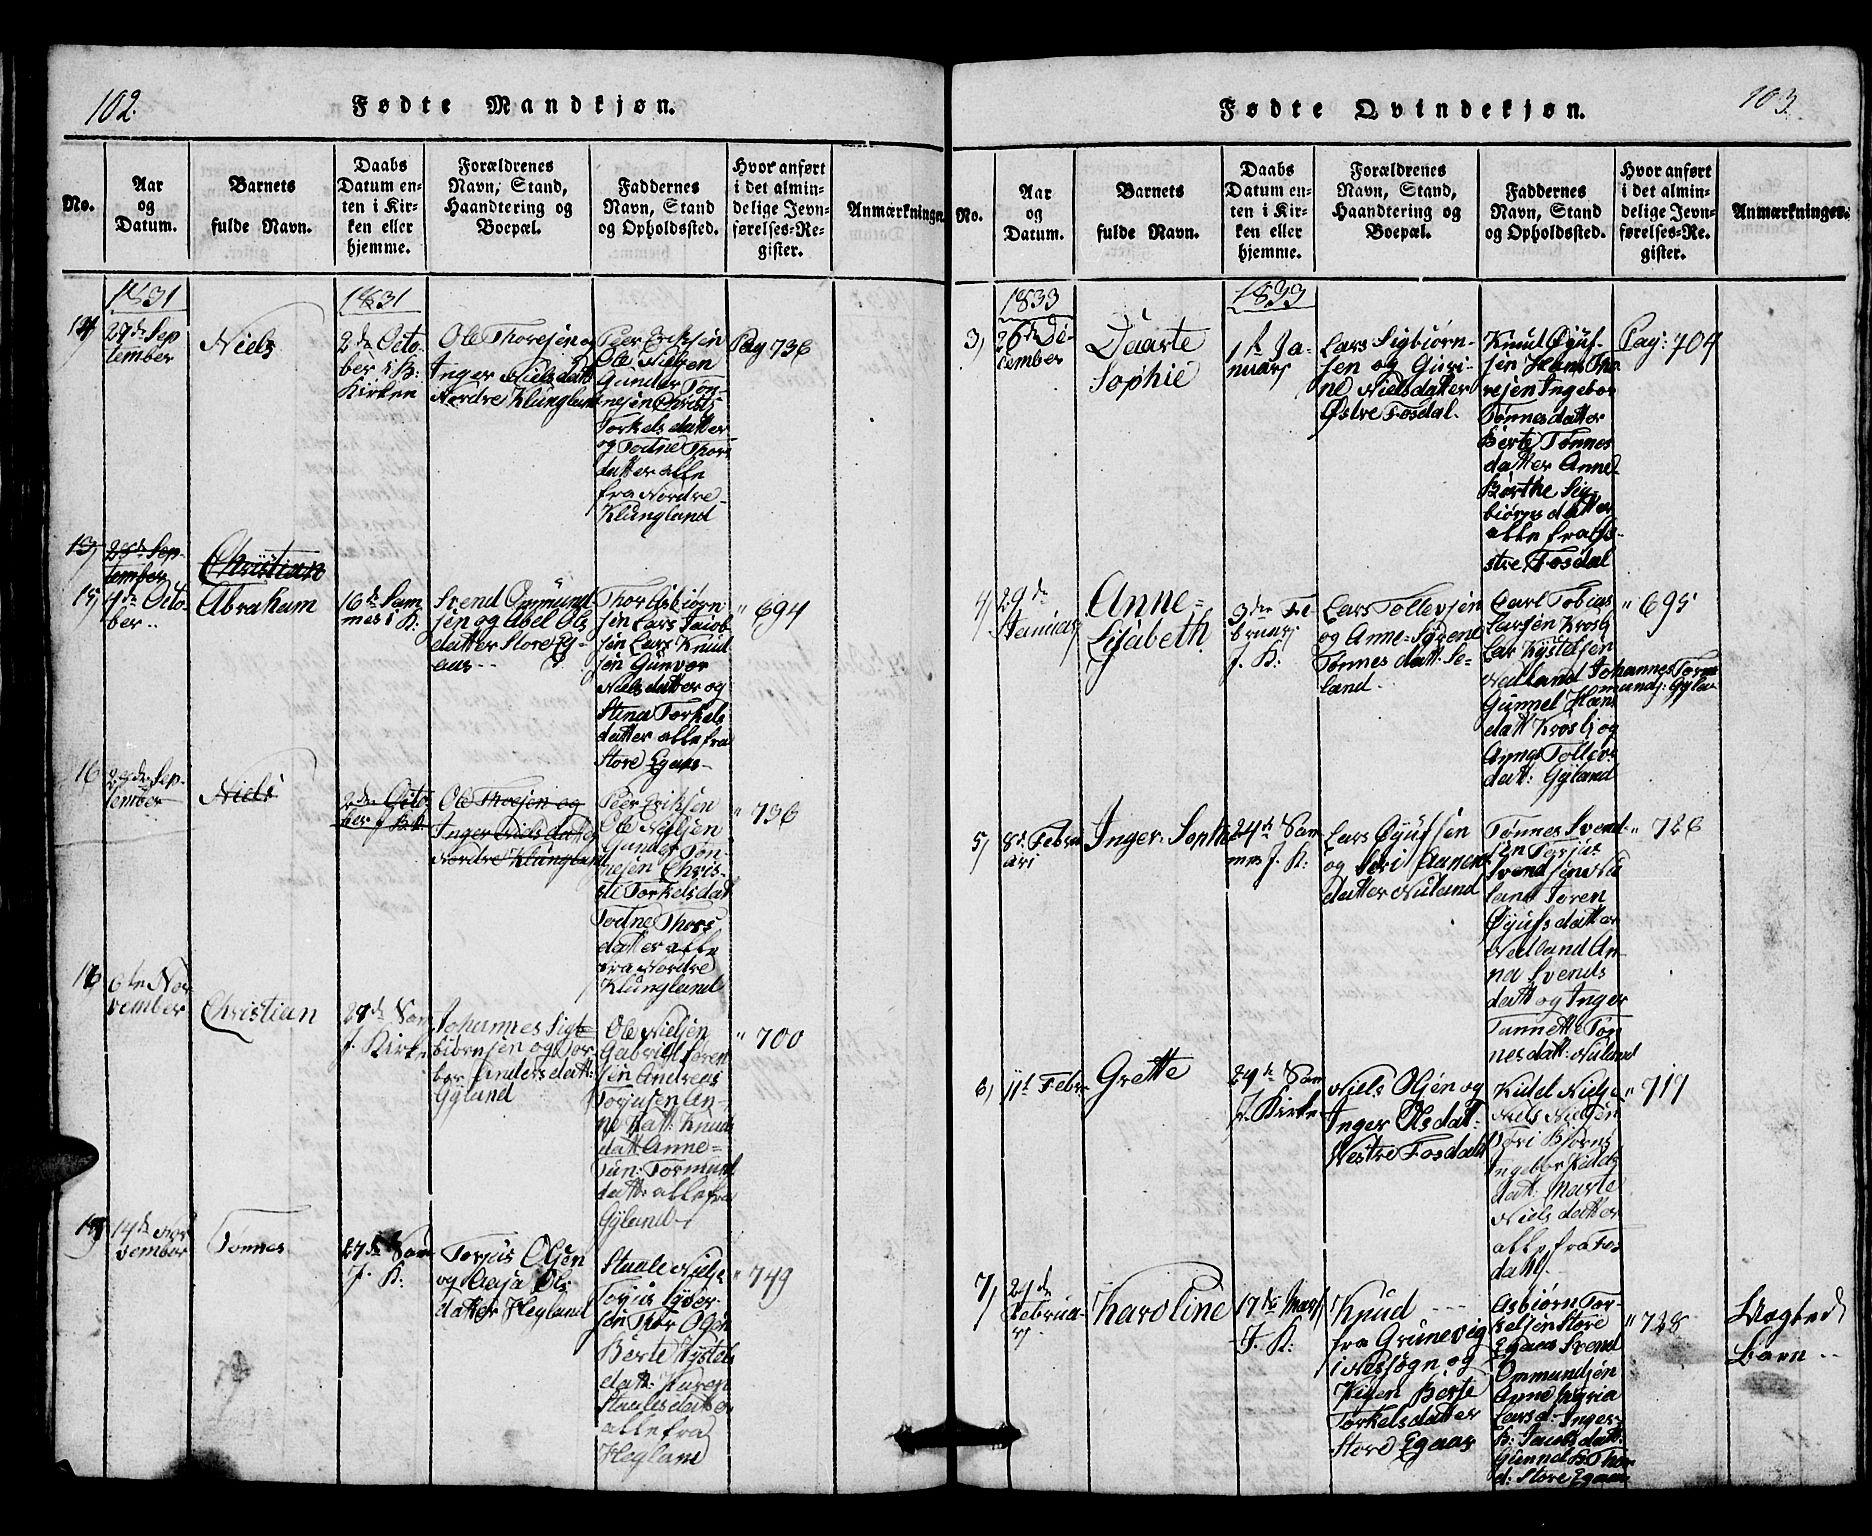 102.
Fødte Mandkjøn.
No.
Aar
og
Datum.
Barnets
fulde Navn.
Daabs
Datum en-
ten i Kir-
ken eller
hjemme.
Forældrenes
Navn, Stand,
Haandtering og
Boepæl.
Faddernes
Navn, Stand
og Opholdssted.
Hvor anført
i det almin-
delige Jevn-
førelses-Re-
gister.
Anmærkninger.
1831
1831
14)
27de Sep
tember
Niels
2de Octo
ber i K:
Kirken
Ole Thoresen og
Inger Nielsdatt
Nordre Klungland
Peer Eriksen
Ole Nielsen
Gunder Tøn
nesen Christi
Torkelsdatter
og Todne Thors
datter alle
fra Nordre
Klungland
Pag 736
13)
28de Sep-
tember
Christian
15)
4de Octo
ber..
Abraham
16de Sam
mes i K:
Svend Ommund
sen og Abel Ols
datter Store Eg-
aas--
Thor Asbiørn
sen Lars Jacob
sen Lars Knud
sen Gunvor
Nielsdatter og
Stena Torkels
datter alle fra
Store Egaas-
" 694
16
28de Sep-
tember
Niels
2de Octo
ber J. K:
Ole Thoresen og
Inger Nielsdatter
Nordre Klungland
Peer Eriksen
Ole Nielsen
Gunder Tøn
nesen Chris-
ti Torkelsdat
Todne Thors
datter alle
fra Nordre
Klungland
" 736
16
6te No-
vember
Christian
28de Sam
J. Kirke
Johannes Sig-
biørnsen og Tor
bor Andersdatt:
Gyland
Ole Nielsen
Gabriel Søren
sen Andreas
Torjusen An-
ne Katt: Knuds
datt Anne-
Gun: Tormund
datt: alle fra
Gyland
" 700
14de No-
vember
Tønnes
27de Sam
J. K:
Torjus Olsen
og Aasa Ols
datter Hegland
Staale Nielse
Torjus Syver-
sen Thor Olsen
Berte Kystels
datt: Karen
Staalesdatter
alle fra
Hegland
" 749
103.
Fødte Qvindekjøn.
No.
Aar
og
Datum.
Barnets
fulde Navn.
Daabs
Datum en-
ten i Kir-
ken eller
hjemme.
Forældrenes
Navn, Stand,
Haandtering og
Boepæl.
Faddernes
Navn, Stand
og Opholdssted.
Hvor anført
i det almin-
delige Jevn-
førelses-Re-
gister.
Anmærkninger.
1833
1833
3)
26de De-
cember
Daarte
Sophie
1ste Ja-
nuarj
Lars Sigbiørn-
sen og Guri-
ne Nielsdatter
Østre Fosdal.
Knud Øjuf-
sen Hans Tho
resen Ingebor
Tønnesdatter
Berte Tønnes
datter Anne-
Børthe Sig-
biørnsdatter
alle fra Ø-
stre Fosdal
Pag: 704
4)
29de
Januar
Anne-
Lisabeth
3die Fe
bruarj
J. K:
Lars Tollevsen
og Anne-Sirene
Tønnesdatt: Se-
land.
Carl Tobias
Larsen Krosb
Lar Kystelsen
Nedland Johannes Torm
mundj: Gylan
Gunnel Hans
datt Krosbj og
Anne Tollevs
dat: Gyland
" 695
5)
8de Febru
ari
Inger-Sophie
24de Sam
mes J. K:
Lars Øjufsen
og Siri Aanen
datter Nuland
Tønnes Svend-
sen Terjus
Svendsen Nu
land Søren
Øjufsdatter
Nedland An
na Svends
datt og Inger
Tannette Tøn
nesdatt: Nuland
" 726
6)
11te Febr.
Grette
24de Sam
J. Kirke
Niels Olsen og
Inger Olsdat:
Vestre Fosdal
Kidel Nielse
Niels Nielsen
Siri Biørns
Ingebor Kidels
datt: Marte
Nielsdatter
alle fra Fos
dall
" 719
7)
24de
Februa-
rj.
Karoline
17de Marj
J. K:
Knud ---
fra Grunevig
i Nessogn og
Pigen Berte
Torkelsdatter
Store Egaas
Asbiørn Tor-
kelsen Store
Egaas Svend
Ommundsen
Anne Syria
Larsd: Inger-
B: Jacobsdatt:
Gunnel B: Thor
d: Store Egaas
" 728
Uægted
Barn --